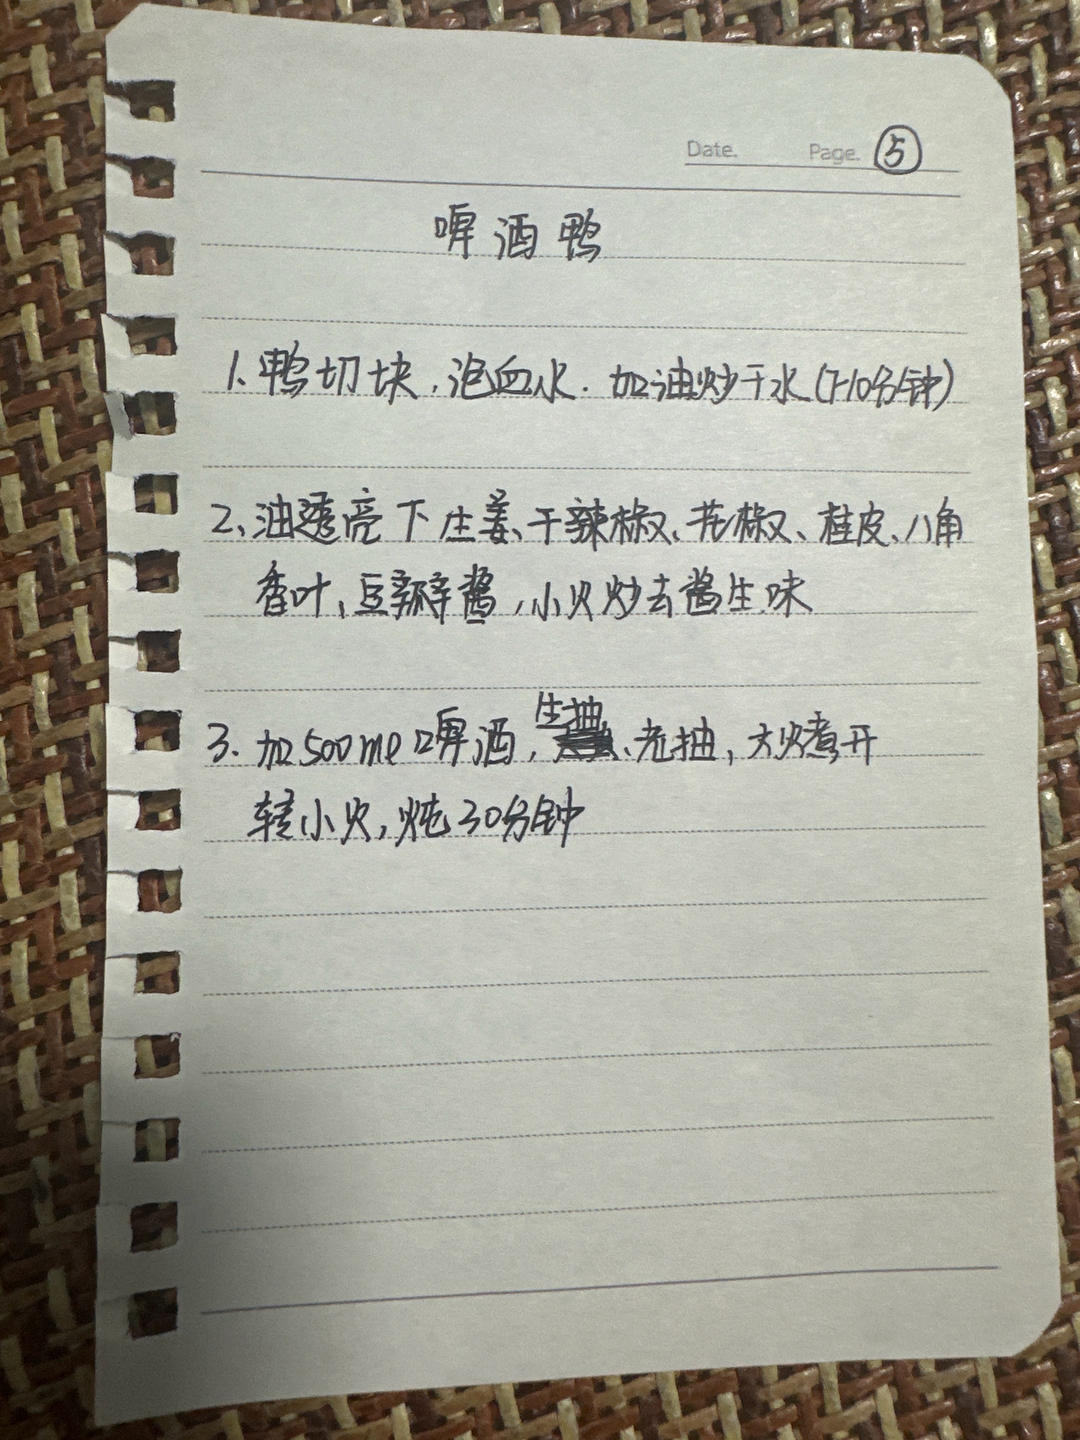 Date. Page. ⑤
啤酒鸭
1. 鸭切块,泡血水. 加油炒干水(5-10分钟)
2、油透亮下生姜、干辣椒、花椒、桂皮、八角
香叶、豆瓣酱,小火炒去酱生味
3. 加500ml啤酒,生抽、老抽,大火煮开
转小火,炖30分钟